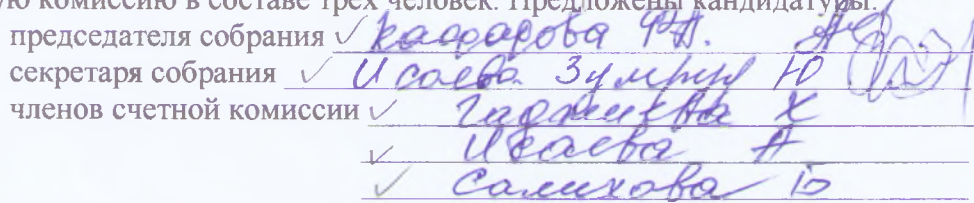 ую комиссию в составе трех человек. Предложены кандидатуры:
председателя собрания
секретаря собрания Исаева Зумруд Ю
членов счетной комиссии Гаджиева Х
Исаева А
Салихова Б